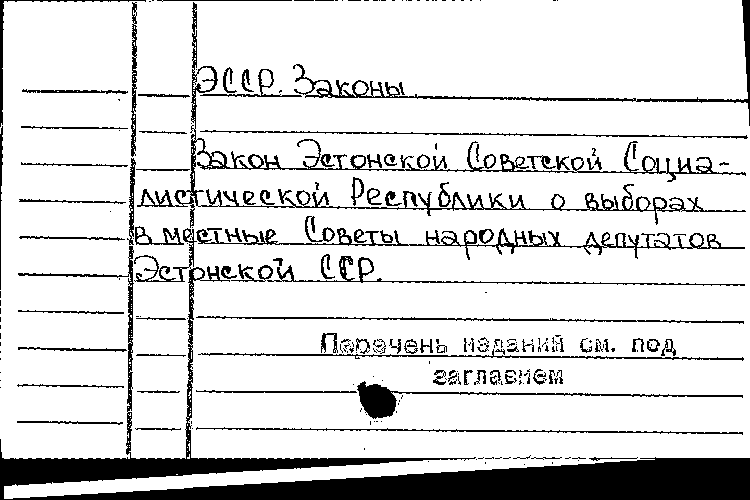 ЭССР. Законы.
Закон Эстонской Советской Социа-
листической Республики о выборах
в местные Советы народных депутатов
Эстонской ССР.
Перечень изданий см. под
заглавием